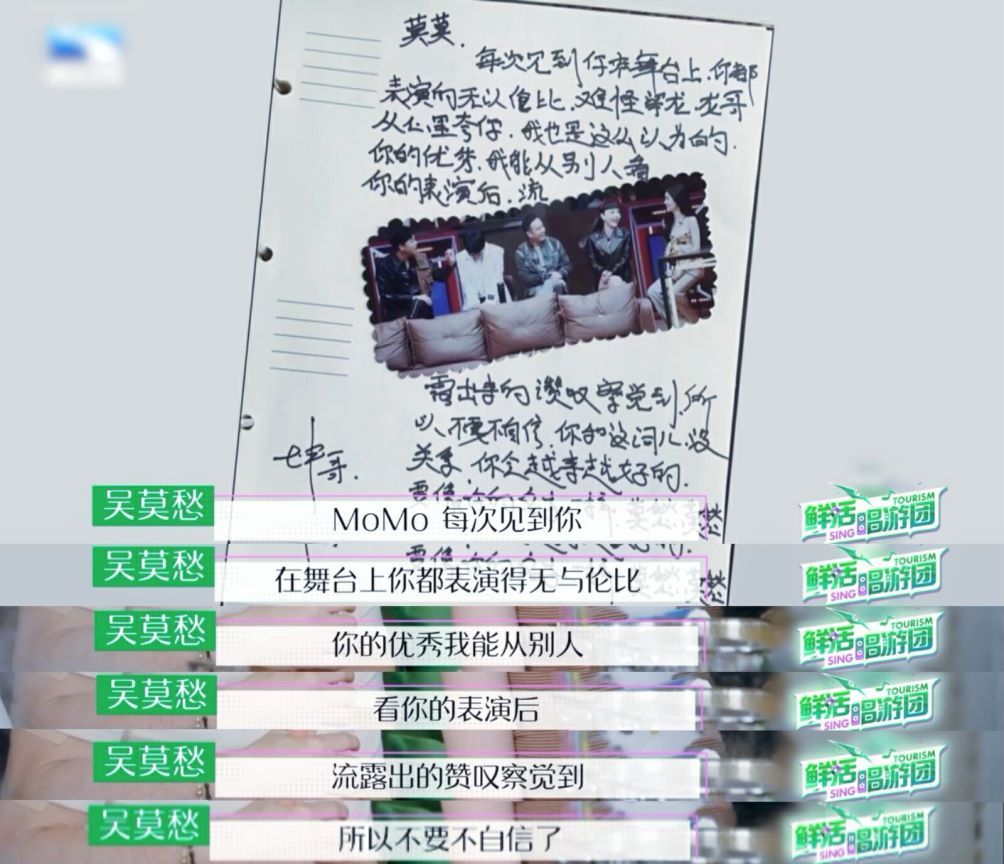 莫莫.
每次见到你在舞台上.你都
表演的无以伦比.难怪 龙.龙哥
从心里夸你.我也是这么认为的.
你的优秀.我能从别人看
你的表演后.流
露出来的讚叹察觉到.所
以.不要不自信.你和这词儿没
关系 你会越来越好的.
哥.
吴莫愁
MoMo 每次见到你
鲜活唱游团
TOURISM
SING
吴莫愁
在舞台上你都表演得无与伦比
鲜活唱游团
TOURISM
SING
吴莫愁
你的优秀我能从别人
鲜活唱游团
TOURISM
SING
吴莫愁
看你的表演后
鲜活唱游团
TOURISM
SING
吴莫愁
流露出的赞叹察觉到
鲜活唱游团
TOURISM
SING
吴莫愁
所以不要不自信了
鲜活唱游团
TOURISM
SING